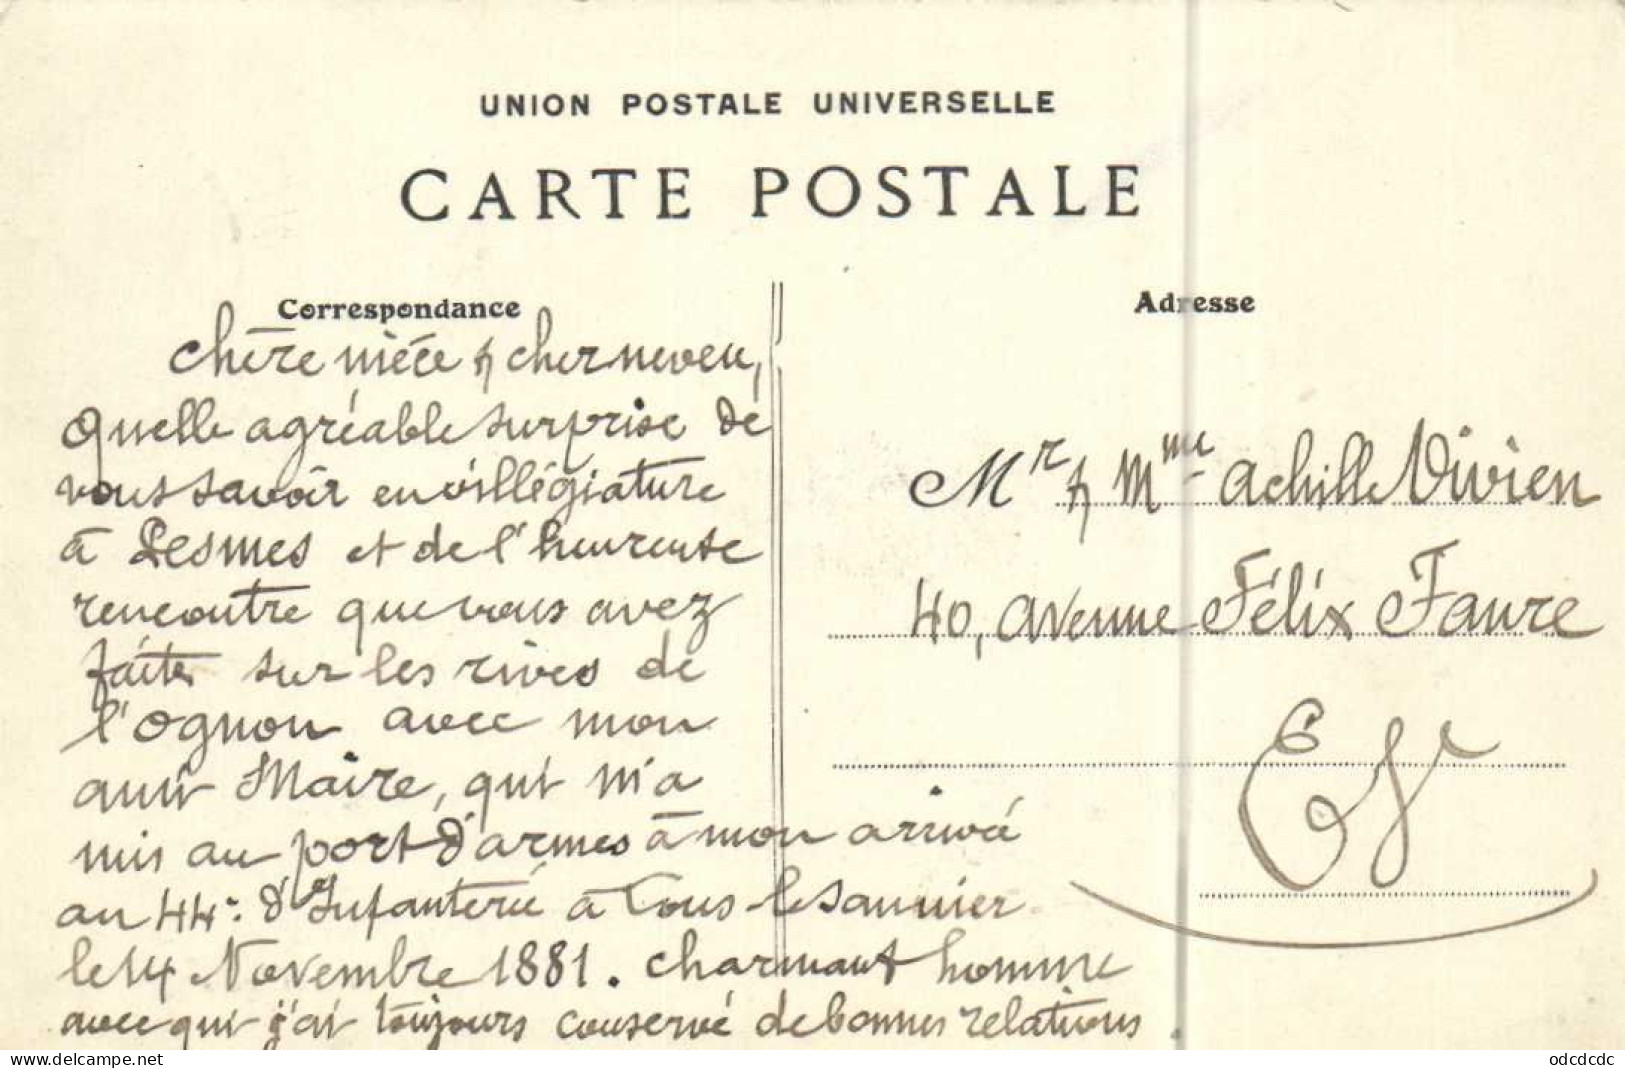 UNION POSTALE UNIVERSELLE
CARTE POSTALE
Correspondance
chère nièce & cher neveu,
Quelle agréable surprise de
vous savoir en villégiature
à Pesmes et de l'heureuse
rencontre que vous avez
faites sur les rives de
l'Ognon avec mon
ami Maire, qui m'a
mis au port d'armes à mon arrivée
au 44e d'Infanterie à Lons-le-Saunier
le 14 Novembre 1881. charmant homme
avec qui j'ai toujours conservé de bonnes relations.
Adresse
Mr & Mme Achille Vivien
40, avenue Félix Faure
EV
www.delcampe.net
odcdcdc